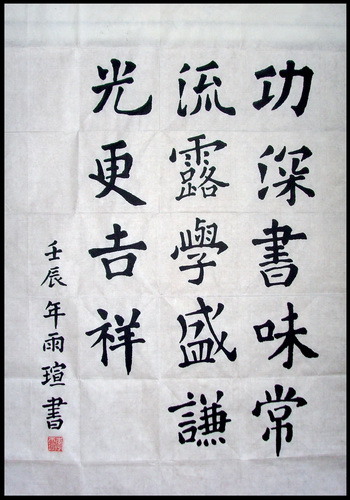 功深書味常
流露學盛謙
光更吉祥
壬辰年雨瑄書